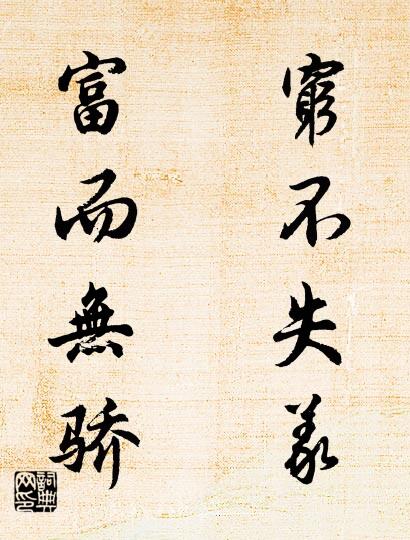 窮不失義
富而無骄
詞典網印